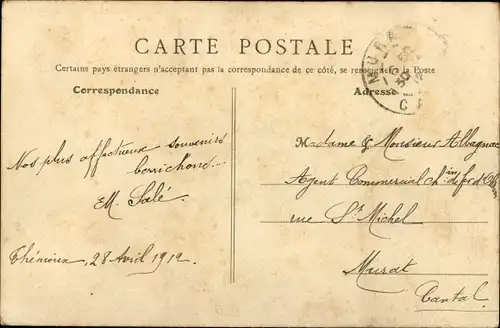 CARTE POSTALE
Certains pays étrangers n'acceptant pas la correspondance de ce côté, se renseigner à la Poste
Correspondance
Adresse
Nos plus affectueux souvenirs
berrichons.
M. Salé.
Thénioux, 28 Avril 1912
Madame & Monsieur Albagnac
Agent Commercial Ch.in de fer d'Orléans
rue St Michel
Murat
Cantal
MURA